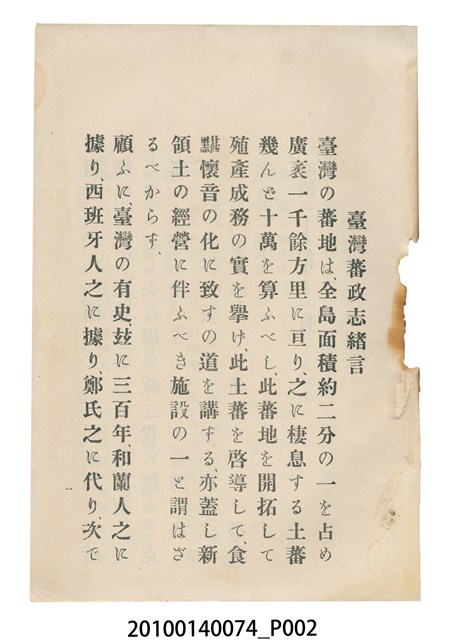 臺灣蕃政志緒言
臺灣の蕃地は、全島面積約二分の一を占め
廣袤一千餘方里に亘り、之に棲息する土蕃
幾んど十萬を算ふべし、此蕃地を開拓して
殖產成務の實を擧げ此土蕃を啓導して、食
黮懷音の化に致すの道を講する、亦蓋し新
領土の經營に伴ふべき施設の一と謂はざ
るべからす、
顧ふに、臺灣の有史、玆に三百年、和蘭人之に
據り、西班牙人之に據り、鄭氏之に代り、次で
一
20100140074_P002